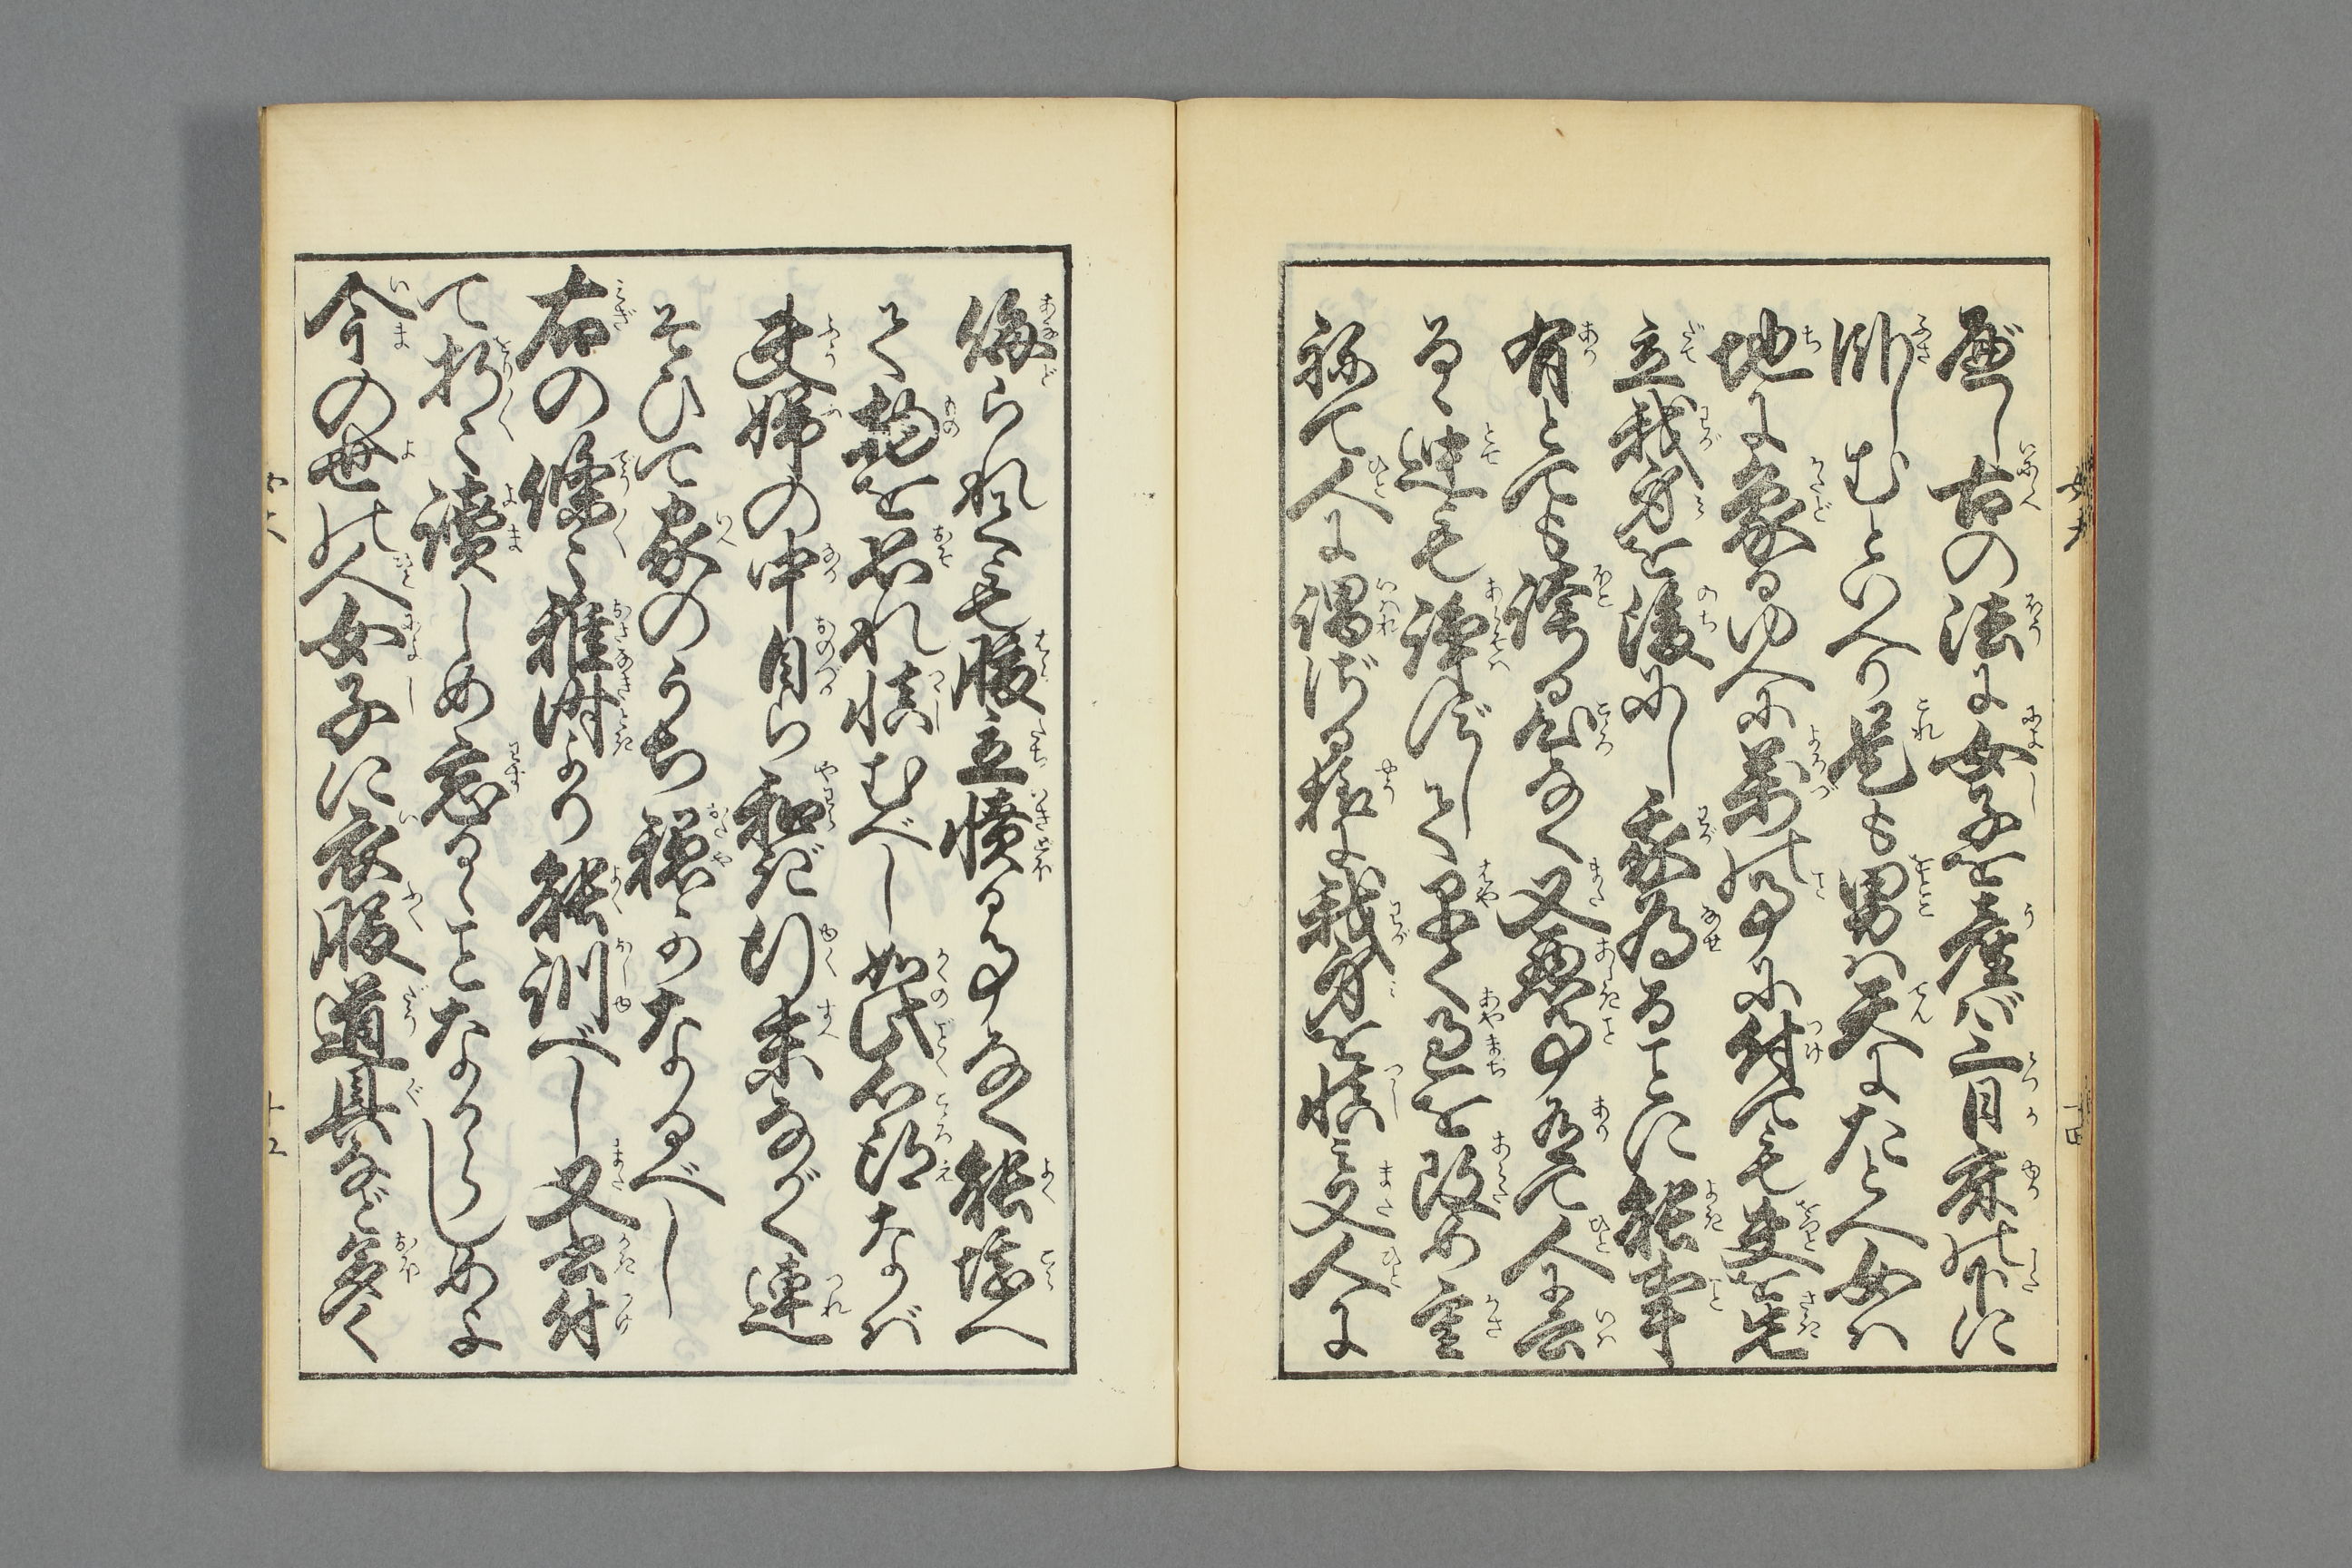 女大
十四
べし古の法に女子を産バ三日床の下に
臥しむといへり是も男ハ天にたとへ女ハ
地に象るゆへに萬の事に付ても夫を先
立我身を後にし我為ることに能事
有とても誇る心なく又悪事有て人に言
るゝ迚も諍ハずして早く過を改め重
ねて人に謂ざる様に我身を慎み又人に
侮られても腹立憤る事なく能堪へ
て物を恐れ慎むべし如此心得なバ
夫婦の中自ら和ぎ行末ながく連
そひて家のうち穏かなるべし
右の條々稚時より能訓べし又書付
て折々讀しめ忘るゝことなからしめよ
今の世の人女子に衣服道具など多く